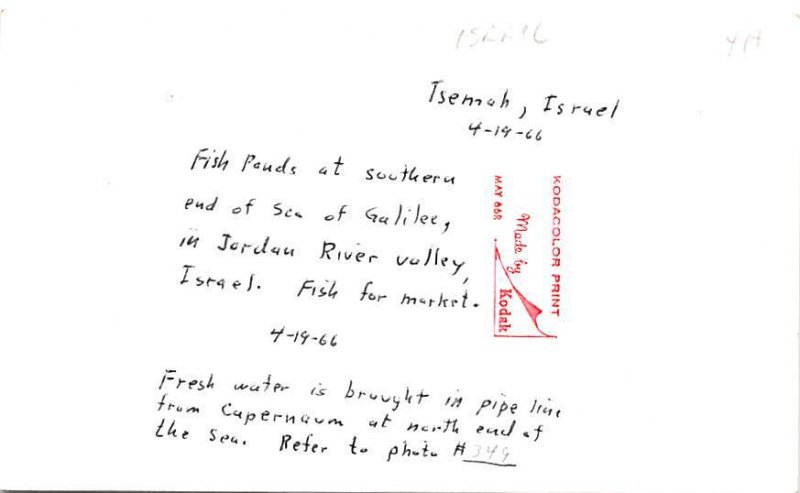 ISRAEL
4H
Tsemah, Israel
4-19-66
Fish Ponds at southern
end of Sea of Galilee,
in Jordan River valley,
Israel. Fish for market.
4-19-66
KODACOLOR PRINT
Made by
Kodak
MAY 66R
Fresh water is brought in pipe line
from Capernaum at north end of
the sea. Refer to photo #349